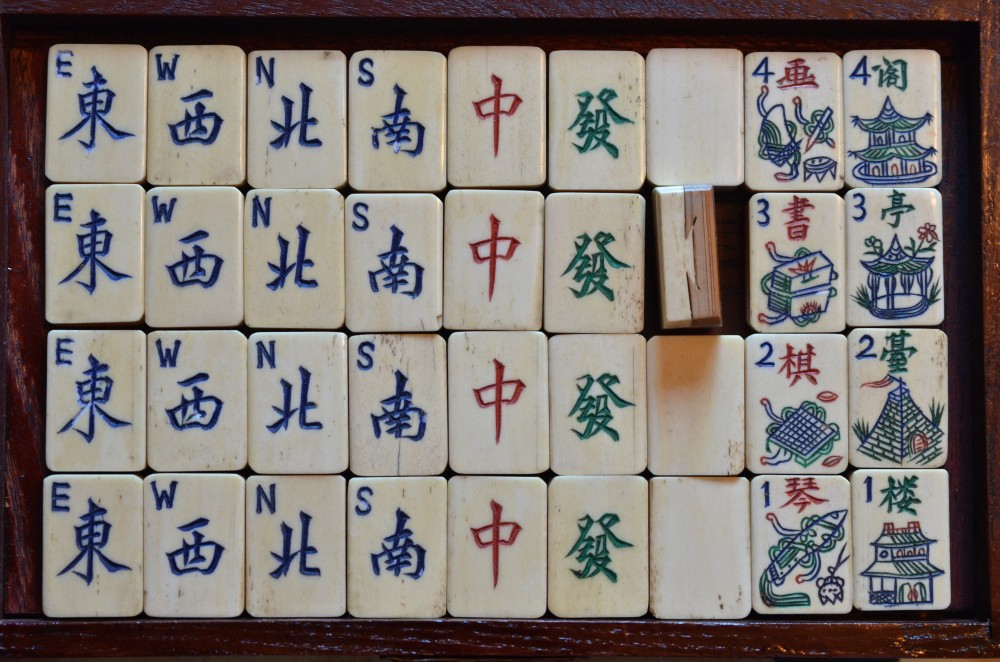 E 東 W 西 N 北 S 南 中 發 4 畫 4 阁
E 東 W 西 N 北 S 南 中 發 3 書 3 亭
E 東 W 西 N 北 S 南 中 發 2 棋 2 臺
E 東 W 西 N 北 S 南 中 發 1 琴 1 楼